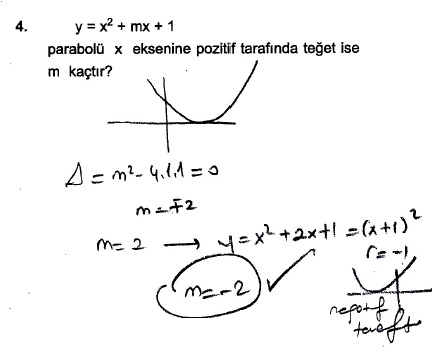 4. y = x² + mx + 1
parabolü x eksenine pozitif tarafında teğet ise
m kaçtır?
Δ = m² - 4.1.1 = 0
m = ∓2
m = 2 → y = x² + 2x + 1 = (x+1)²
r = -1
m = -2
negatif
tarafta